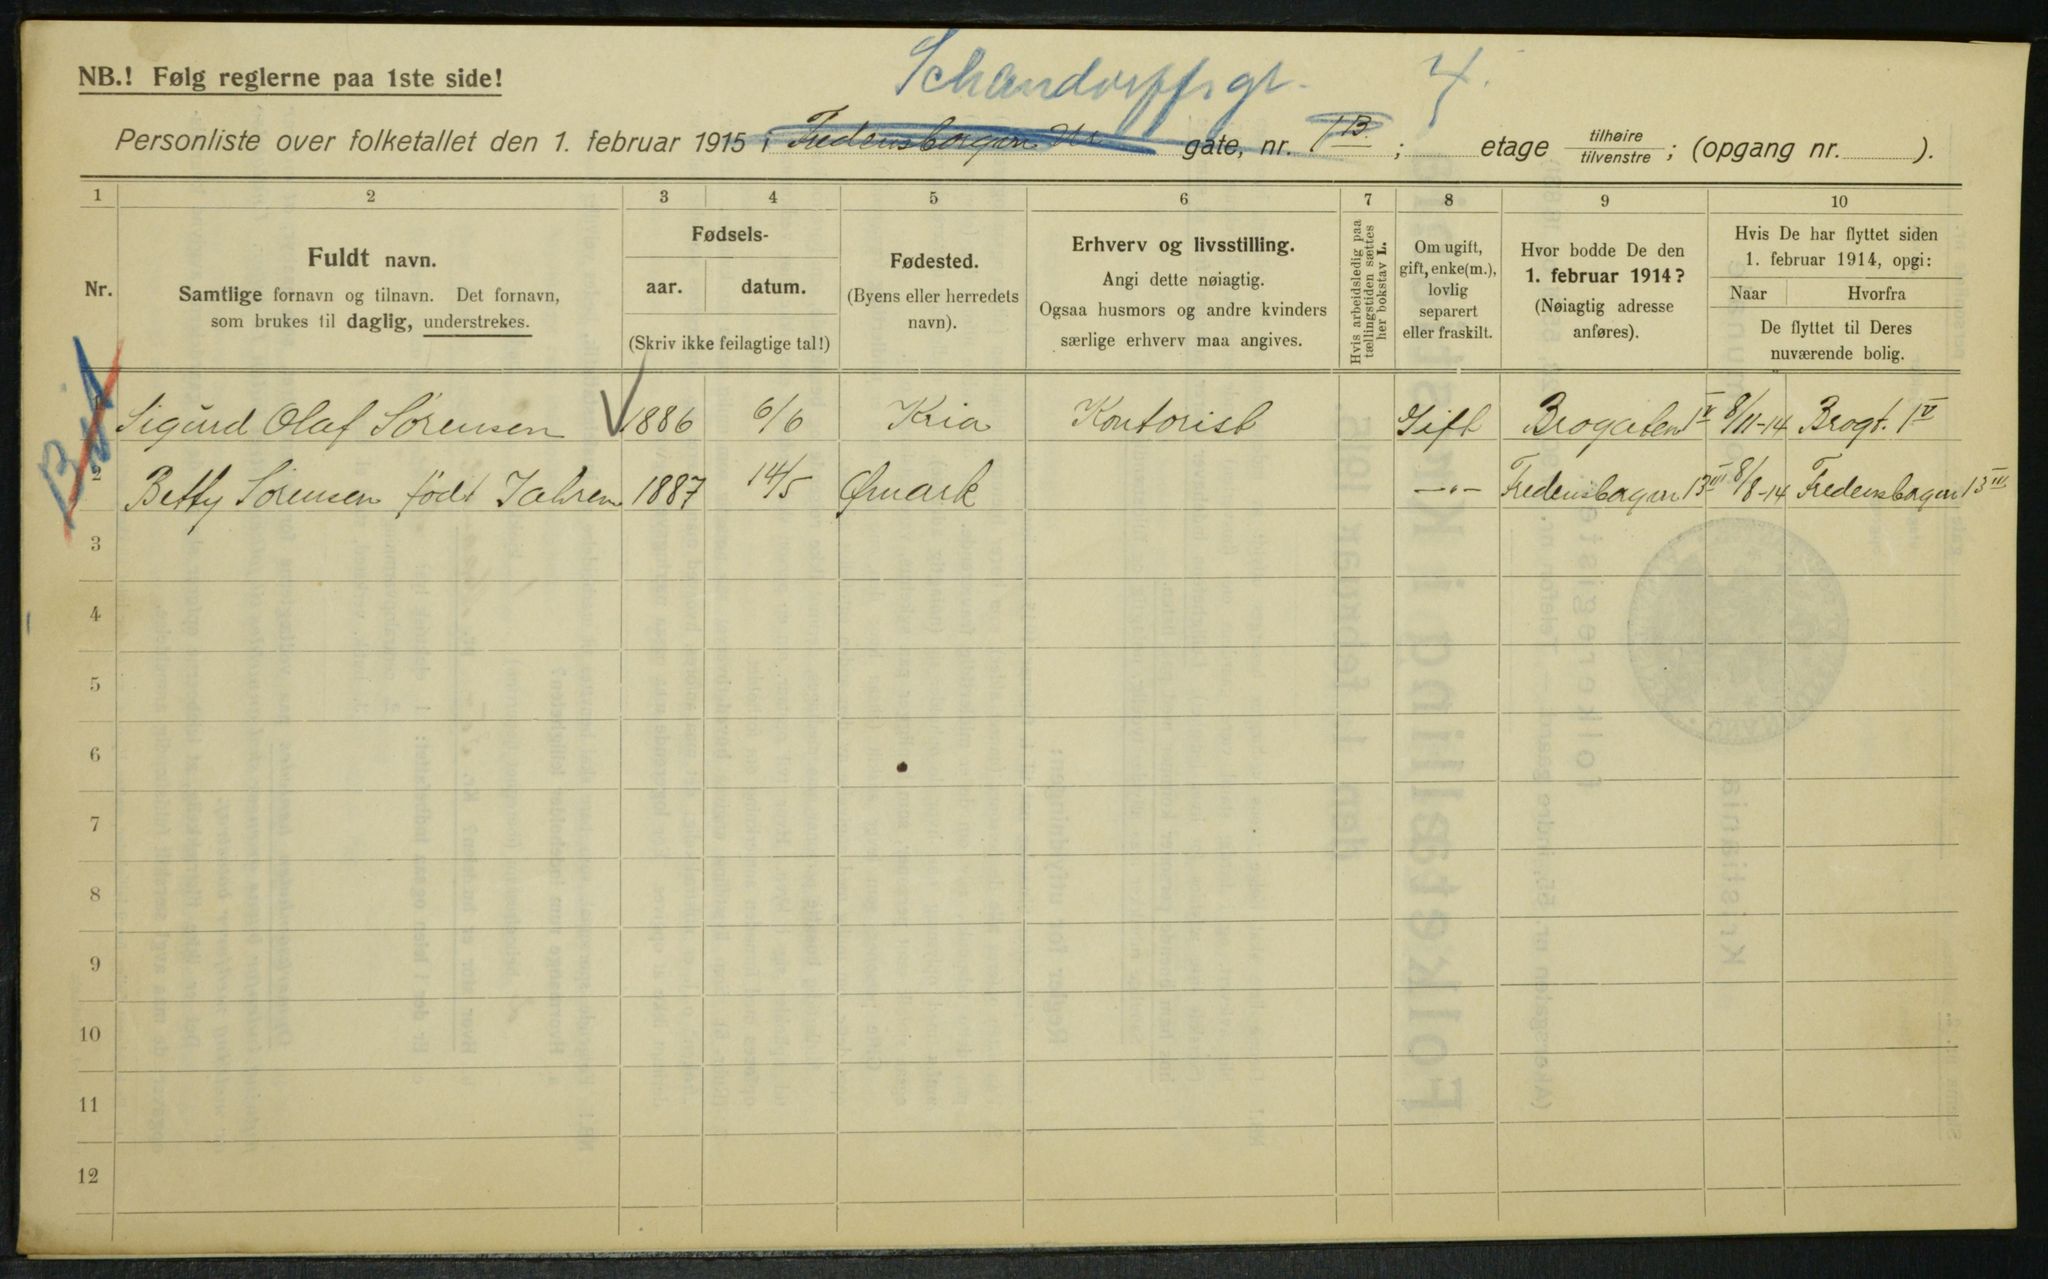 Schandorffsgt. 4.
NB.! Følg reglerne paa 1ste side!
Personliste over folketallet den 1. februar 1915 i Fredensborgvn gate, nr. 1B.; etage tilhøire tilvenstre; (opgang nr. ).
1 2 3 4 5 6 7 8 9 10
Nr.
Fuldt navn.
Samtlige fornavn og tilnavn. Det fornavn,
som brukes til daglig, understrekes.
Fødsels-
aar. datum.
(Skriv ikke feilagtige tal!)
Fødested.
(Byens eller herredets
navn).
Erhverv og livsstilling.
Angi dette nøiagtig.
Ogsaa husmors og andre kvinders
særlige erhverv maa angives.
Hvis arbeidsledig paa
tællingstiden sættes
her bokstav L.
Om ugift,
gift, enke(m.),
lovlig
separert
eller fraskilt.
Hvor bodde De den
1. februar 1914?
(Nøiagtig adresse
anføres).
Hvis De har flyttet siden
1. februar 1914, opgi:
Naar Hvorfra
De flyttet til Deres
nuværende bolig.
1 Sigurd Olaf Sørensen 1886 6/6 Kria Kontorist Gift Brogaten 1 V 8/11-14 Brogt. 1 V
2 Betty Sørensen født Jahren 1887 14/5 Ømark —„— Fredensborgvn 13 III 8/8-14 Fredensborgvn 13 III
3
4
5
6
7
8
9
10
11
12